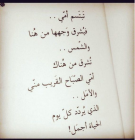 تبتسم أمّي ..
فيشرق وجهها من هُنا
والشّمس ..
تُشرق من هُناك
أمّي الصّباح القريب منّي
والأمل ..
الذي يُردّد كلّ يوم
الحياة أجمل!